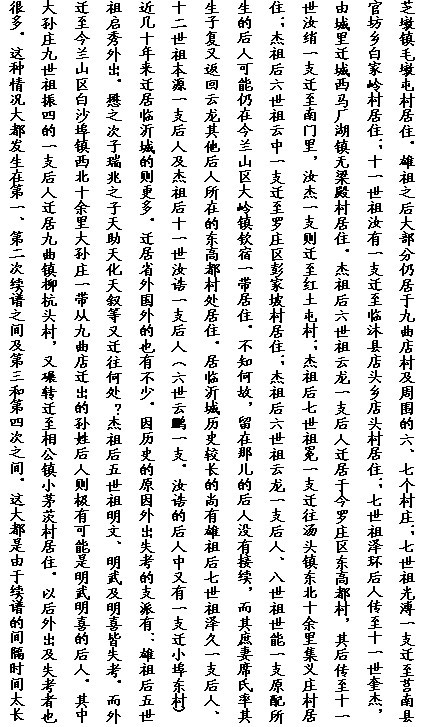 芝墩镇毛墩屯村居住。雄祖之后大部分仍居于九曲店村及周围的六、七个村庄；七世祖光溥一支迁至莒南县
官坊乡白家岭村居住；十一世祖汝有一支迁至临沭县店头乡店头村居住；七世祖泽环后人传至十一世奎杰，
由城里迁城西马厂湖镇无梁殿村居住。杰祖后六世祖云龙一支后人迁居于今罗庄区东高都村，其后传至十一
世汝绪一支迁至南门里，汝杰一支则迁至红土屯村；杰祖后七世祖冕一支迁往汤头镇东北十余里集义庄村居
住；杰祖后六世祖云中一支迁至罗庄区彭家坡村居住；杰祖后六世祖云龙一支后人、八世祖世能一支原配所
生的后人可能仍在今兰山区大岭镇钦宿一带居住。不知何故，留在那儿的后人没有接续，而其庶妻席氏率其
生子复又返回云龙其他后人所在的东高都村处居住。居临沂城历史较长的尚有雄祖后七世祖泽久一支后人、
十二世祖本源一支后人及杰祖后十一世汝诰一支后人（六世云鹏一支。汝诰的后人中又有一支迁小埠东村）
近几十年来迁居临沂城的则更多。迁居省外国外的也有不少。因历史的原因外出失考的支派有：雄祖后五世
祖启秀外出。懋之次子瑞兆之子天助天化天叙等又迁往何处？杰祖后五世祖明文、明武及明喜皆失考。而外
迁至今兰山区白沙埠镇西北十余里大孙庄一带从九曲店迁出的孙姓后人则极有可能是明武明喜的后人。其中
大孙庄九世祖振四的一支后人迁居九曲镇柳杭头村，又碾转迁至相公镇小茅茨村居住。以后外出及失考者也
很多。这种情况大都发生在第一、第二次续谱之间及第三和第四次之间。这大都是由于续谱的间隔时间太长